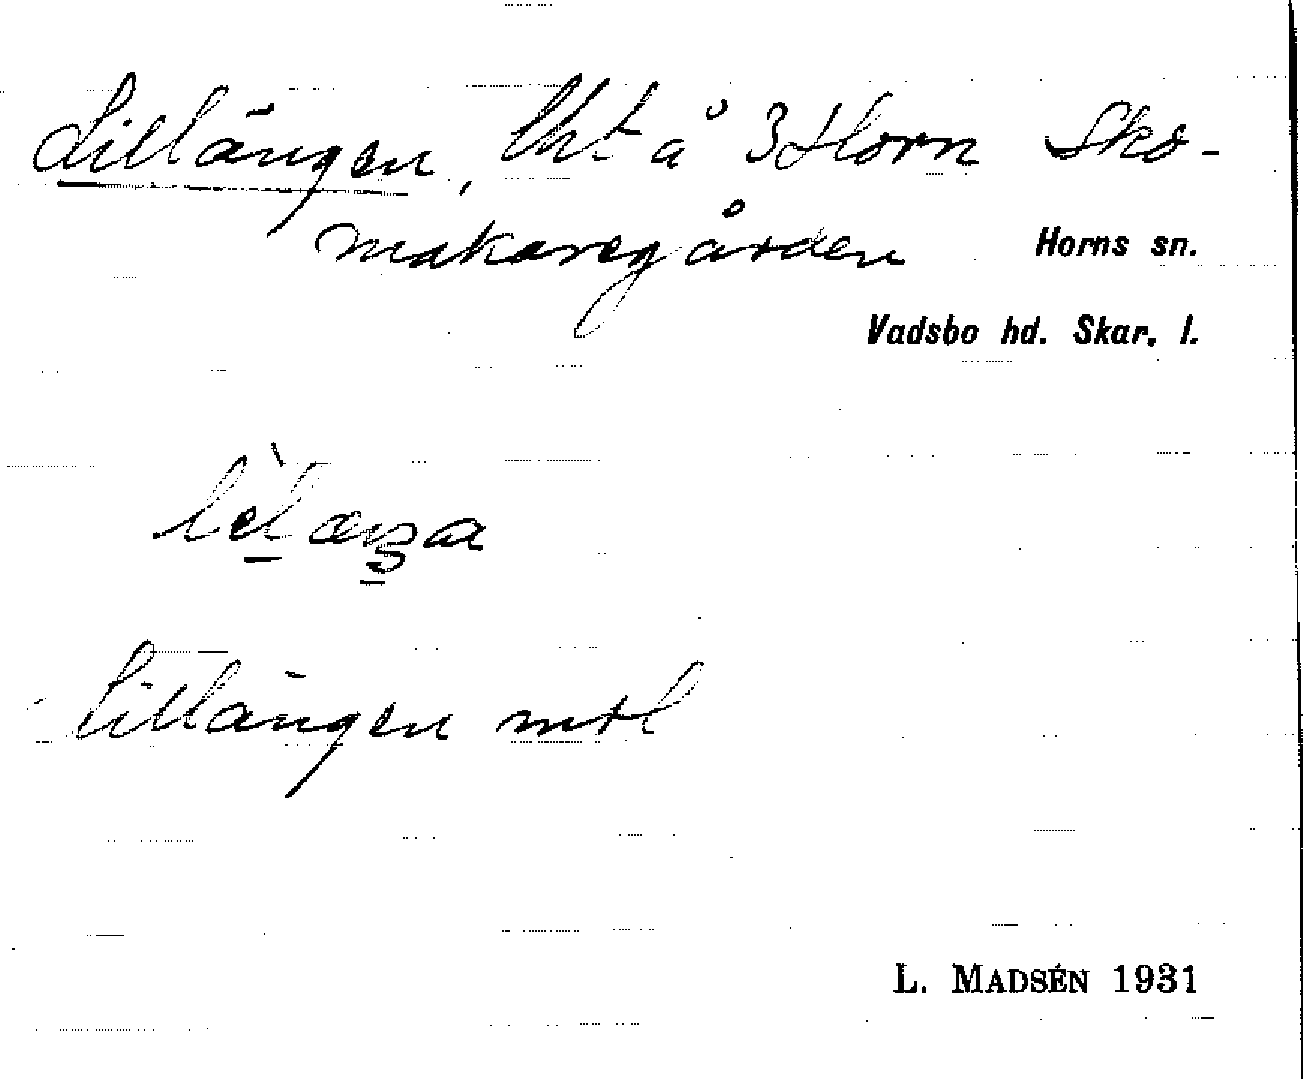 Lillängen, lht å 3 Horn Sko-
makaregården
Horns sn.
Vadsbo hd. Skar. l.
Lillängen mtl
L. MADSÉN 1931